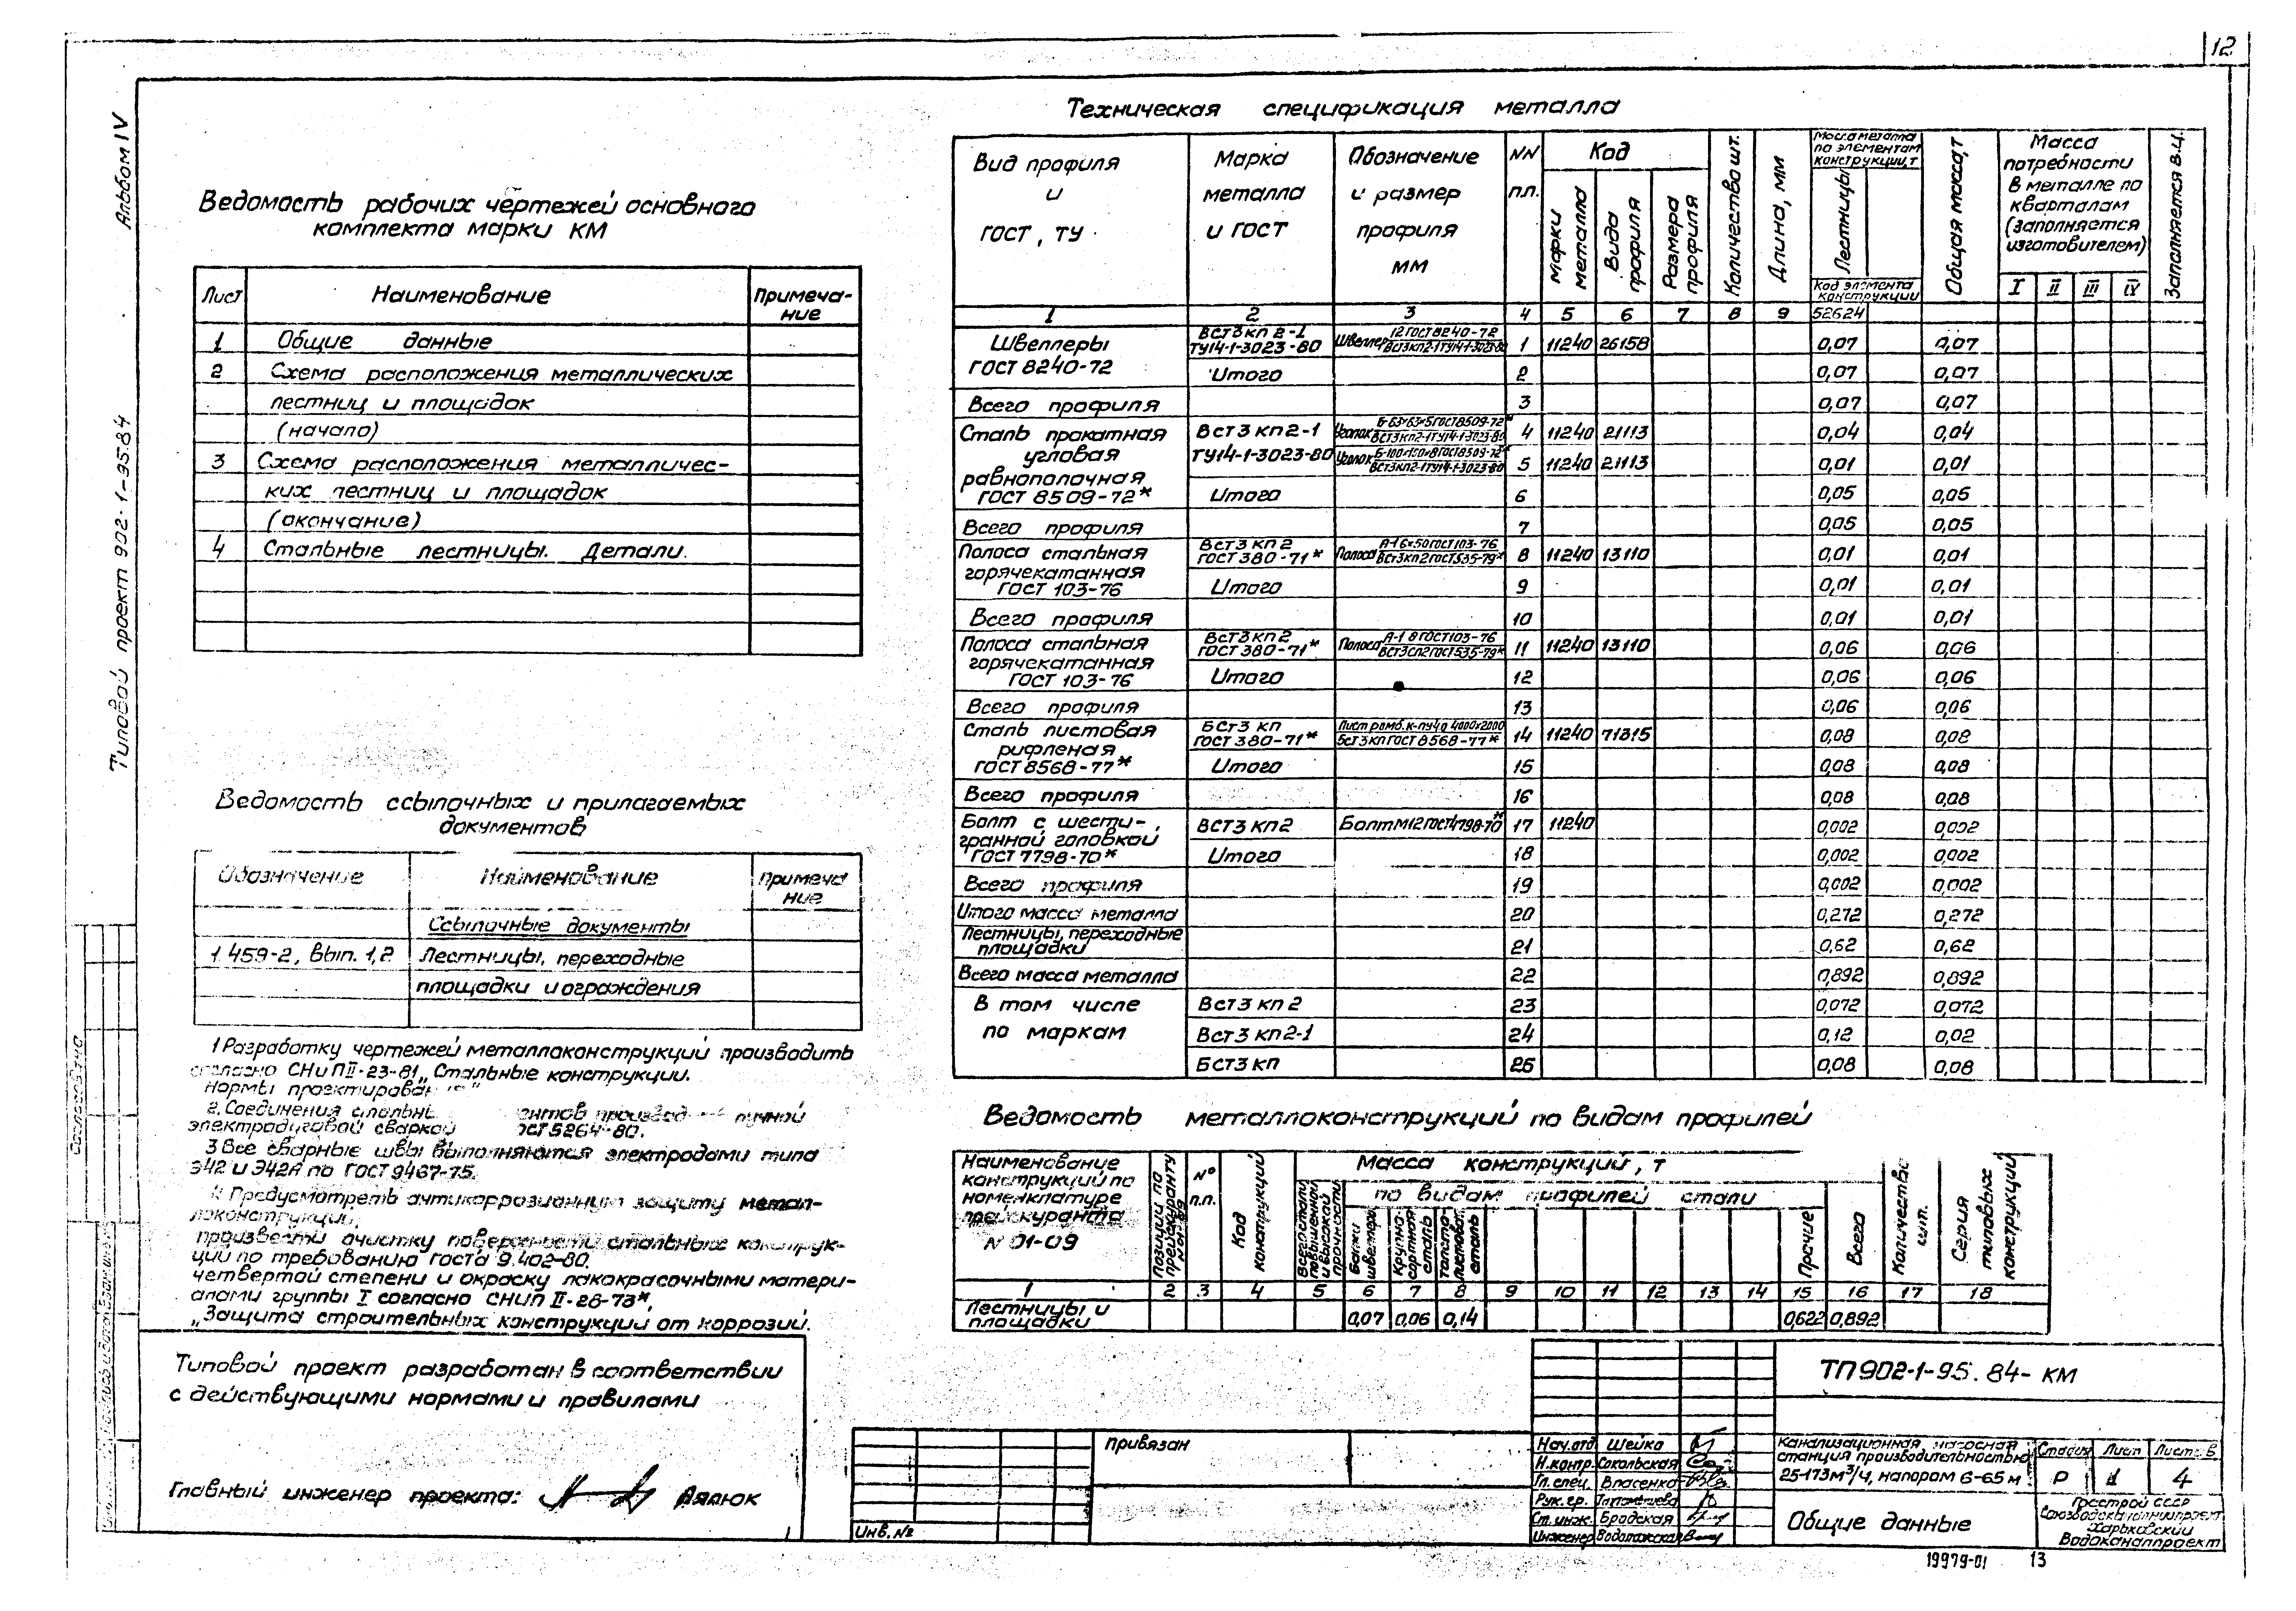 12
Альбом IV
Типовой проект 902-1-95.84
Ведомость рабочих чертежей основного
комплекта марки КМ
Лист Наименование Примеча-
ние
1 Общие данные
2 Схема расположения металлических
лестниц и площадок
(начало)
3 Схема расположения металличес-
ких лестниц и площадок
(окончание)
4 Стальные лестницы. Детали.
Ведомость ссылочных и прилагаемых
документов
Обозначение Наименование Примеча
ние
Ссылочные документы
1.459-2, вып. 1,2 Лестницы, переходные
площадки и ограждения
1 Разработку чертежей металлоконструкций производить
согласно СНиП II-23-81 „Стальные конструкции.
Нормы проектирован
2. Соединения стальн ентов производ ручной
электродуговой сваркой ГОСТ 5264-80.
3 Все сварные швы выполняются электродами типа
Э42 и Э42А по ГОСТ 9467-75.
Предусмотреть антикоррозионную защиту метал-
локонструкций,
произвести очистку поверхности стальных конструк-
ций по требованию ГОСТа 9.402-80.
четвертой степени и окраску лакокрасочными матери-
алами группы I согласно СНиП II-28-73*,
„Защита строительных конструкций от коррозий.
Типовой проект разработан в соответствии
с действующими нормами и правилами
Главный инженер проекта: Дядюк
Техническая спецификация металла
Вид профиля и ГОСТ, ТУ
Марка металла и ГОСТ
Обозначение и размер профиля мм
NN п.п.
Код
Марки металла
Вида профиля
Размера профиля
Количество шт.
Длина, мм
Масса металла по элементам конструкции, т
Лестницы
Код элемента конструкции
Общая масса, т
Масса потребности в металле по кварталам (заполняется изготовителем)
I II III IV
Заполняется в.ц.
1 2 3 4 5 6 7 8 9 52624
Швеллеры ГОСТ 8240-72 ВСт3кп2-1 ТУ14-1-3023-80 Швеллер 12 ГОСТ 8240-72 ВСт3кп2-1 ТУ14-1-3023-80 1 11240 26158 0,07 0,07
Итого 2 0,07 0,07
Всего профиля 3 0,07 0,07
Сталь прокатная угловая равнополочная ГОСТ 8509-72* ВСт3кп2-1 ТУ14-1-3023-80 Уголок Б-63×63×5 ГОСТ 8509-72* ВСт3кп2-1 ТУ14-1-3023-80 4 11240 21113 0,04 0,04
Уголок Б-100×100×8 ГОСТ 8509-72* ВСт3кп2-1 ТУ14-1-3023-80 5 11240 21113 0,01 0,01
Итого 6 0,05 0,05
Всего профиля 7 0,05 0,05
Полоса стальная горячекатанная ГОСТ 103-76 ВСт3кп2 ГОСТ 380-71* Полоса А-1 6×50 ГОСТ 103-76 ВСт3кп2 ГОСТ 535-79* 8 11240 13110 0,01 0,01
Итого 9 0,01 0,01
Всего профиля 10 0,01 0,01
Полоса стальная горячекатанная ГОСТ 103-76 ВСт3кп2 ГОСТ 380-71* Полоса А-1 8 ГОСТ 103-76 ВСт3сп2 ГОСТ 535-79* 11 11240 13110 0,06 0,06
Итого 12 0,06 0,06
Всего профиля 13 0,06 0,06
Сталь листовая рифленая ГОСТ 8568-77* БСт3кп ГОСТ 380-71* Лист ромб. К-ПУ 4000×2000 БСт3кп ГОСТ 8568-77* 14 11240 71315 0,08 0,08
Итого 15 0,08 0,08
Всего профиля 16 0,08 0,08
Болт с шести-
гранной головкой
ГОСТ 7798-70* ВСт3кп2 Болт М12 ГОСТ 4798-70* 17 11240 0,002 0,002
Итого 18 0,002 0,002
Всего профиля 19 0,002 0,002
Итого масса металла 20 0,272 0,272
Лестницы, переходные площадки 21 0,62 0,62
Всего масса металла 22 0,892 0,892
В том числе ВСт3кп2 23 0,072 0,072
по маркам ВСт3кп2-1 24 0,12 0,02
БСт3кп 25 0,08 0,08
Ведомость металлоконструкций по видам профилей
Наименование конструкций по номенклатуре прейскуранта N 01-09
Позиции по прейскуранту N 01-09
№ п.п.
Код конструкций
Масса конструкций, т
Всего стали повышенной и высокой прочности
по видам профилей стали
Балки швеллеры
Крупно-
сортная сталь
Толсто-
листовая сталь
Прочие
Всего
Количество шт.
Серия типовых конструкций
1 2 3 4 5 6 7 8 9 10 11 12 13 14 15 16 17 18
Лестницы и площадки 0,07 0,06 0,14 0,622 0,892
Привязан
Инв. №
ТП 902-1-95.84-КМ
Нач.отд. Шейко
Н.контр. Сокольская
Гл.спец. Власенко
Рук. гр.
Ст. инж. Бродская
Инженер Водолажская
Канализационная насосная
станция производительностью
25-173м³/ч, напором 6-65м
Стадия Лист Листов
Р 1 4
Общие данные
Госстрой СССР
Союзводоканалниипроект
Харьковский
Водоканалпроект
19979-01 13
Согласовано